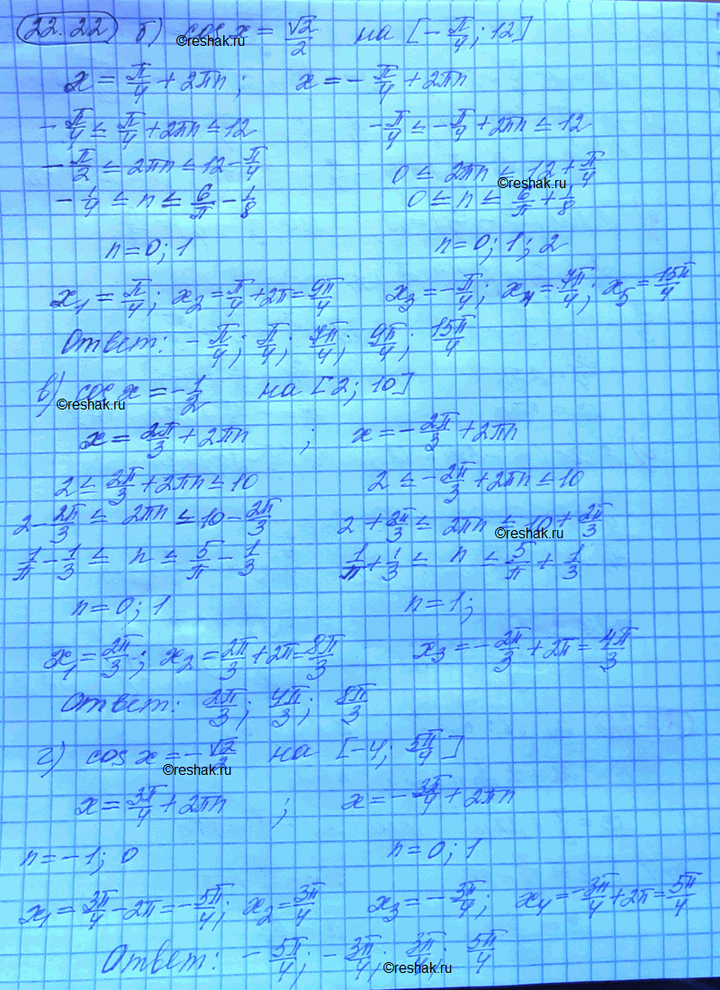 22.22 б) cos x = √2/2 на [-π/4; 12]
©reshak.ru
x = π/4 + 2πn; x = -π/4 + 2πn
-π/4 ≤ π/4 + 2πn ≤ 12 -π/4 ≤ -π/4 + 2πn ≤ 12
-π/2 ≤ 2πn ≤ 12 - π/4 0 ≤ 2πn ≤ 12 + π/4
©reshak.ru
-1/4 ≤ n ≤ 6/π - 1/8 0 ≤ n ≤ 6/π + 1/8
n = 0; 1 n = 0; 1; 2
x₁ = π/4; x₂ = π/4 + 2π = 9π/4 x₃ = -π/4; x₄ = 7π/4; x₅ = 15π/4
Ответ: -π/4; π/4; 7π/4; 9π/4; 15π/4
в) cos x = -1/2 на [2; 10]
©reshak.ru
x = 2π/3 + 2πn ; x = -2π/3 + 2πn
2 ≤ 2π/3 + 2πn ≤ 10 2 ≤ -2π/3 + 2πn ≤ 10
2 - 2π/3 ≤ 2πn ≤ 10 - 2π/3 2 + 2π/3 ≤ 2πn ≤ 10 + 2π/3
©reshak.ru
1/π - 1/3 ≤ n ≤ 5/π - 1/3 1/π + 1/3 ≤ n ≤ 5/π + 1/3
n = 0; 1 n = 1;
x₁ = 2π/3; x₂ = 2π/3 + 2π = 8π/3 x₃ = -2π/3 + 2π = 4π/3
Ответ: 2π/3; 4π/3; 8π/3
г) cos x = -√2/2 на [-4; 5π/4]
©reshak.ru
x = 3π/4 + 2πn ; x = -3π/4 + 2πn
n = -1; 0 n = 0; 1
x₁ = 3π/4 - 2π = -5π/4; x₂ = 3π/4 x₃ = -3π/4; x₄ = -3π/4 + 2π = 5π/4
Ответ: -5π/4; -3π/4; 3π/4; 5π/4
©reshak.ru